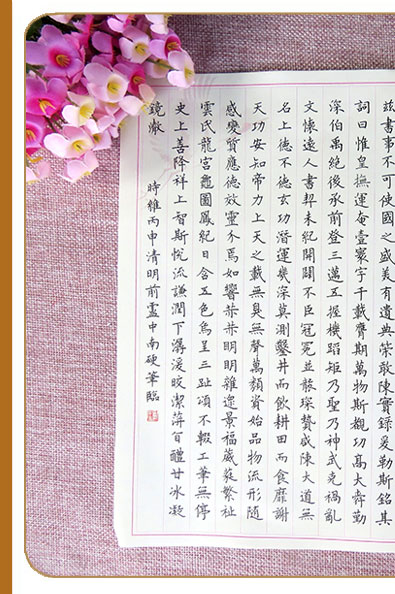 茲書事不可使國之盛美有遺典策敢陳實錄爰勒斯銘其
詞曰惟皇撫運奄壹寰宇千載膺期萬物斯覩功高大舜勤
深伯禹絶後承前登三邁五握機蹈矩乃聖乃神武克禍亂
文懷遠人書契未紀開闢不臣冠冕並襲琛贄咸陳大道無
名上德不德玄功潛運幾深莫測鑿井而飲耕田而食靡謝
天功安知帝力上天之載無臭無聲萬類資始品物流形隨
感變質應德效靈介焉如響赫赫明明雜遝景福葳蕤繁祉
雲氏龍宮龜圖鳳紀日含五色烏呈三趾頌不輟工筆無停
史上善降祥上智斯悅流謙潤下潺湲皎潔蓱旨醴甘冰凝
鏡澈
時維丙申清明前中南硬筆臨